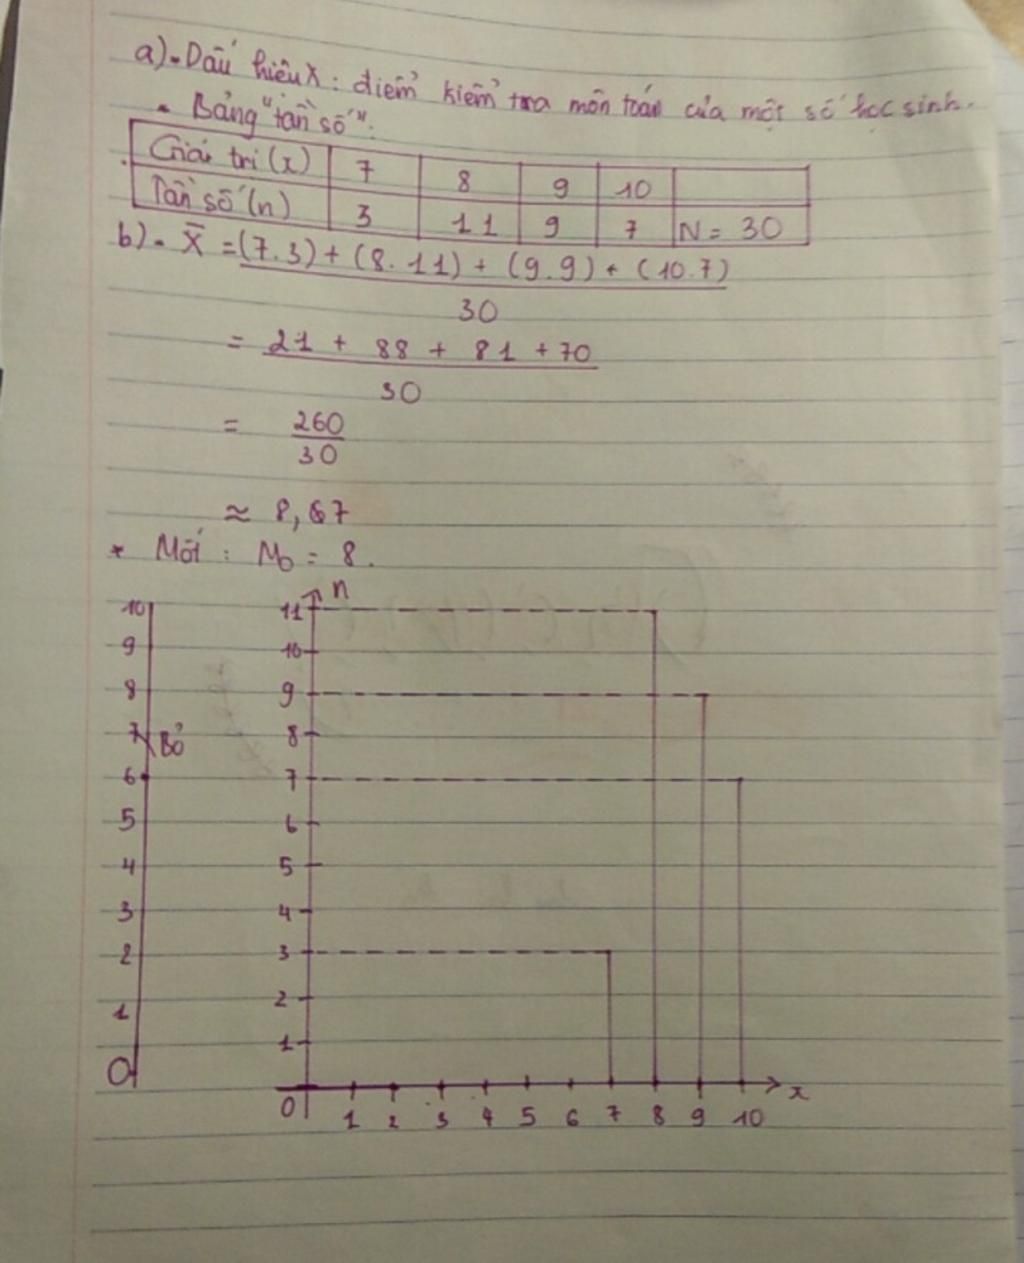 a) - Dấu hiệu X : điểm kiểm tra môn toán của một số học sinh.
- Bảng "tần số".
Giá trị (x) 7 8 9 10
Tần số (n) 3 11 9 7 N = 30
b) - X̄ = (7.3) + (8.11) + (9.9) + (10.7)
30
= 21 + 88 + 81 + 70
30
= 260
30
≈ 8,67
* Mốt : M₀ = 8.
n
10
9
8
7 Bỏ
6
5
4
3
2
1
0
11
10
9
8
7
6
5
4
3
2
1
0 1 2 3 4 5 6 7 8 9 10 x